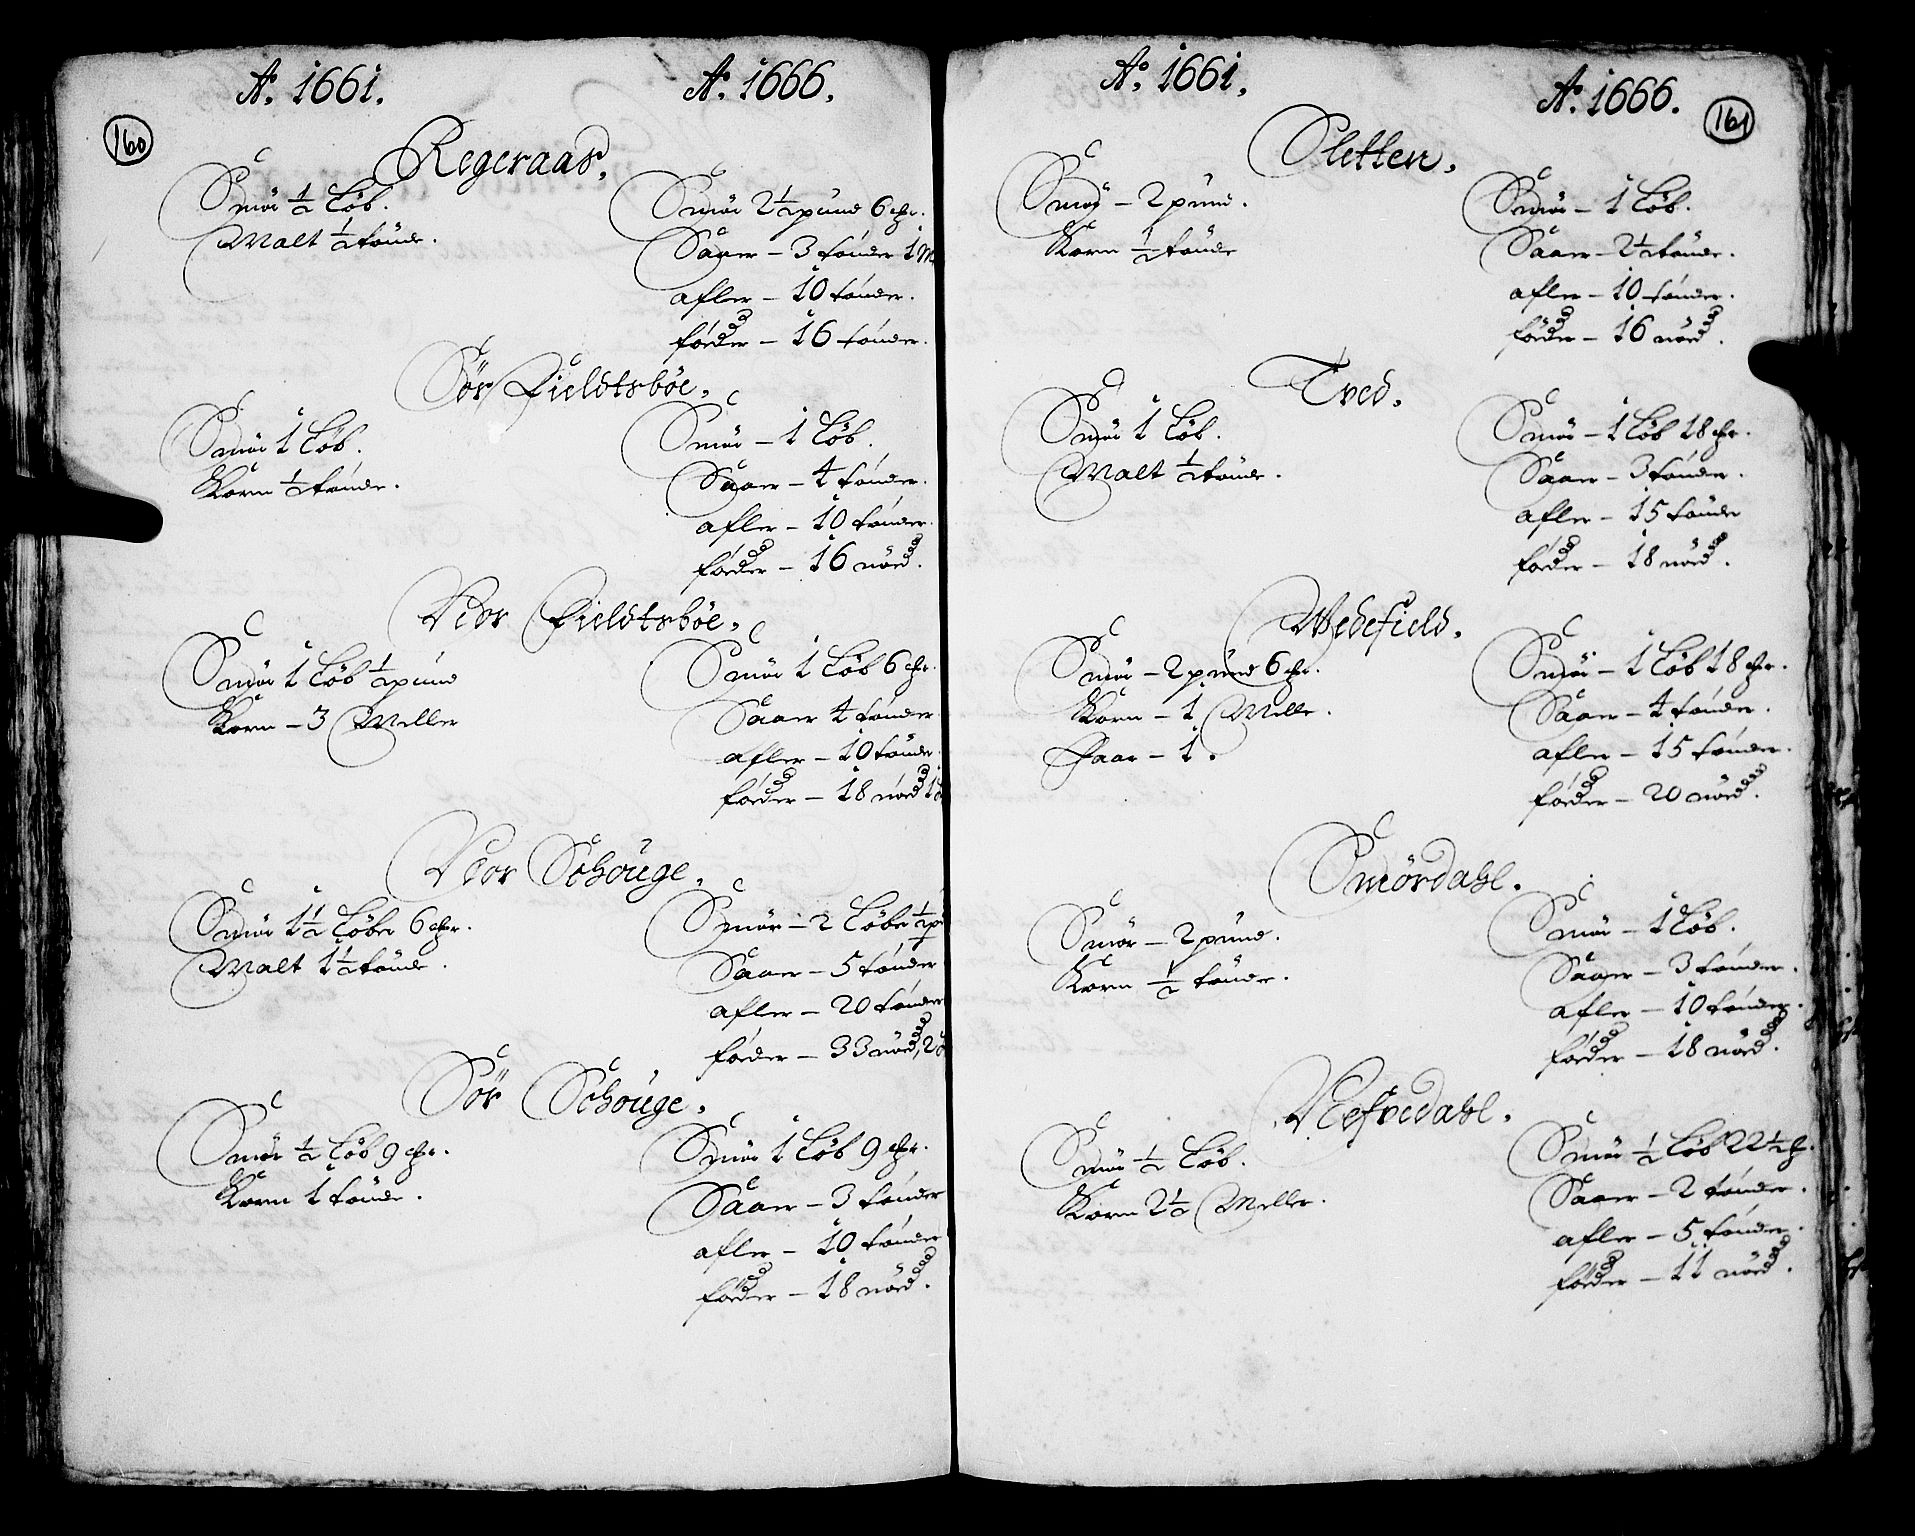 160
Ao. 1661.
Ao. 1666.
Regeraas.
Smör ½ Löb.
Malt ½ tönde.
Smör 2½ pund 6 mr.
Saaer – 3 tönder 1 M
afler – 10 tönder.
föeder – 16 tönder.
Sör Fieldtsböe.
Smör 1 Löb.
Korn ½ tönde.
Smör – 1 Löb.
Saaer – 4 tönder.
afler – 10 tönder.
föeder – 16 nöed.
Neor Fieldtsböe.
Smör 1 Löb ½ pund
Korn – 3 Meller
Smör 1 Löb 6 mr.
Saaer 4 tönder
afler – 10 tönder.
föeder – 18 nöed
Neor Schouge.
Smör 1½ Löber 6 mr.
Malt 1½ tönde.
Smör – 2 Löber ½ pu
Saaer – 5 tönder
afler – 20 tönder
föeder – 33 nöed,
Sör Schouge.
Smör ½ Löb 9 mr.
Korn 1 tönde.
Smör 1 Löb 9 mr.
Saaer – 3 tönder
afler – 10 tönder
föeder – 18 nöed.
161
Ao. 1661.
Ao. 1666.
Sletten.
Smör – 2 pund.
Korn ½ tönde
Smör – 1 Löb.
Saaer – 2½ tönde.
afler – 10 tönder.
föeder – 16 nöed.
Tved.
Smör 1 Löb.
Malt ½ tönde.
Smör – 1 Löb 18 mr.
Saaer – 3 tönder.
afler – 15 tönder
föeder – 18 nöed.
Wedefield.
Smör – 2 pund 6 mr.
Korn – 1 Melle.
Faar – 1.
Smör – 1 Löb 18 mr.
Saaer – 4 tönder.
afler – 15 tönder.
föeder – 20 nöed.
Smördahl.
Smör – 2 pund.
Korn ½ tönde.
Smör – 1 Löb.
Saaer – 3 tönder.
afler – 10 tönder.
föeder – 18 nöed.
Smör ½ Löb.
Korn 2½ Meller.
Smör ½ Löb 22½ mr.
Saaer – 2 tönder.
afler – 5 tönder.
föeder – 11 nöed.